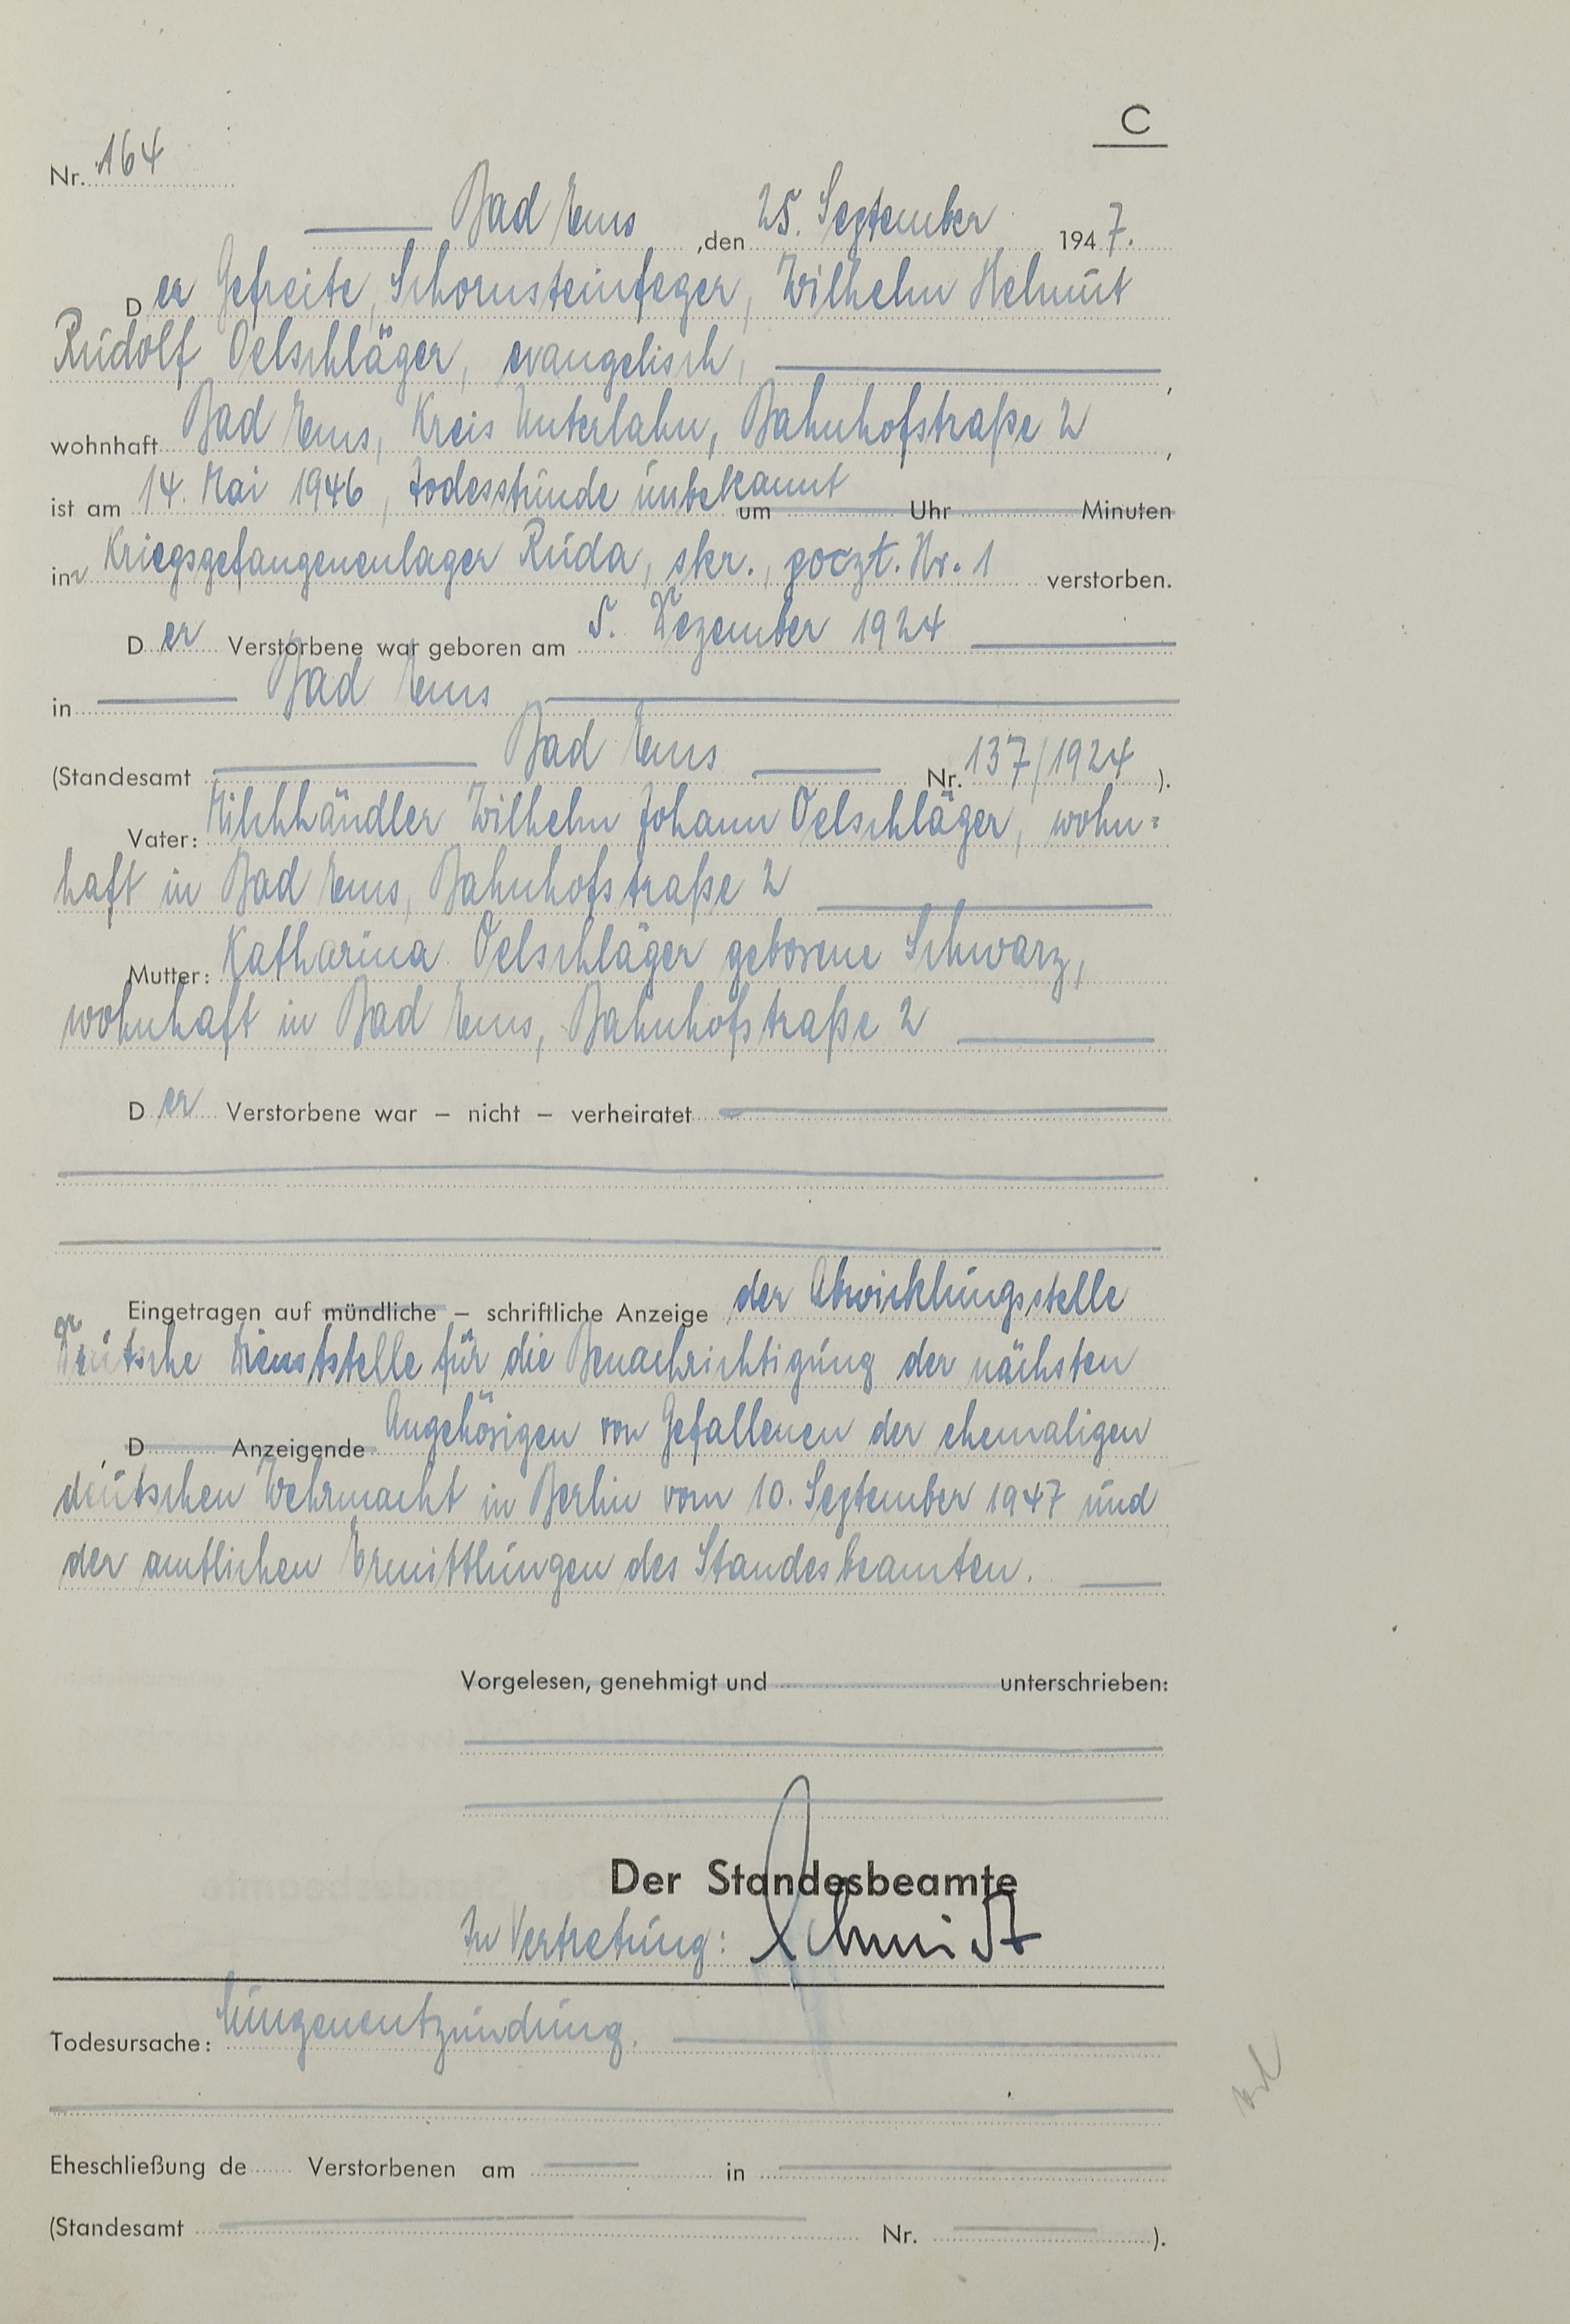 C
Nr. 164
Bad Ems, den 25. September 1947.
Der Gefreite, Schornsteinfeger, Wilhelm Helmut
Rudolf Oelschläger, evangelisch,
wohnhaft Bad Ems, Kreis Unterlahn, Bahnhofstraße 2,
ist am 14. Mai 1946, Todesstunde unbekannt um Uhr Minuten
im Kriegsgefangenenlager Ruda, skr., poczt. Nr. 1 verstorben.
Der Verstorbene war geboren am 5. Dezember 1924
in Bad Ems
(Standesamt Bad Ems Nr. 137/1924).
Vater: Milchhändler Wilhelm Johann Oelschläger, wohn=
haft in Bad Ems, Bahnhofstraße 2
Mutter: Katharina Oelschläger geborene Schwarz,
wohnhaft in Bad Ems, Bahnhofstraße 2
Der Verstorbene war – nicht – verheiratet
Eingetragen auf mündliche – schriftliche Anzeige der Abwicklungsstelle
Deutsche Dienststelle für die Benachrichtigung der nächsten
D Anzeigende Angehörigen von Gefallenen der ehemaligen
deutschen Wehrmacht in Berlin vom 10. September 1947 und
der amtlichen Ermittlungen des Standesbeamten.
Vorgelesen, genehmigt und unterschrieben:
Der Standesbeamte
In Vertretung: Schmidt
Todesursache: Lungenentzündung.
Eheschließung de Verstorbenen am in
(Standesamt Nr. ).